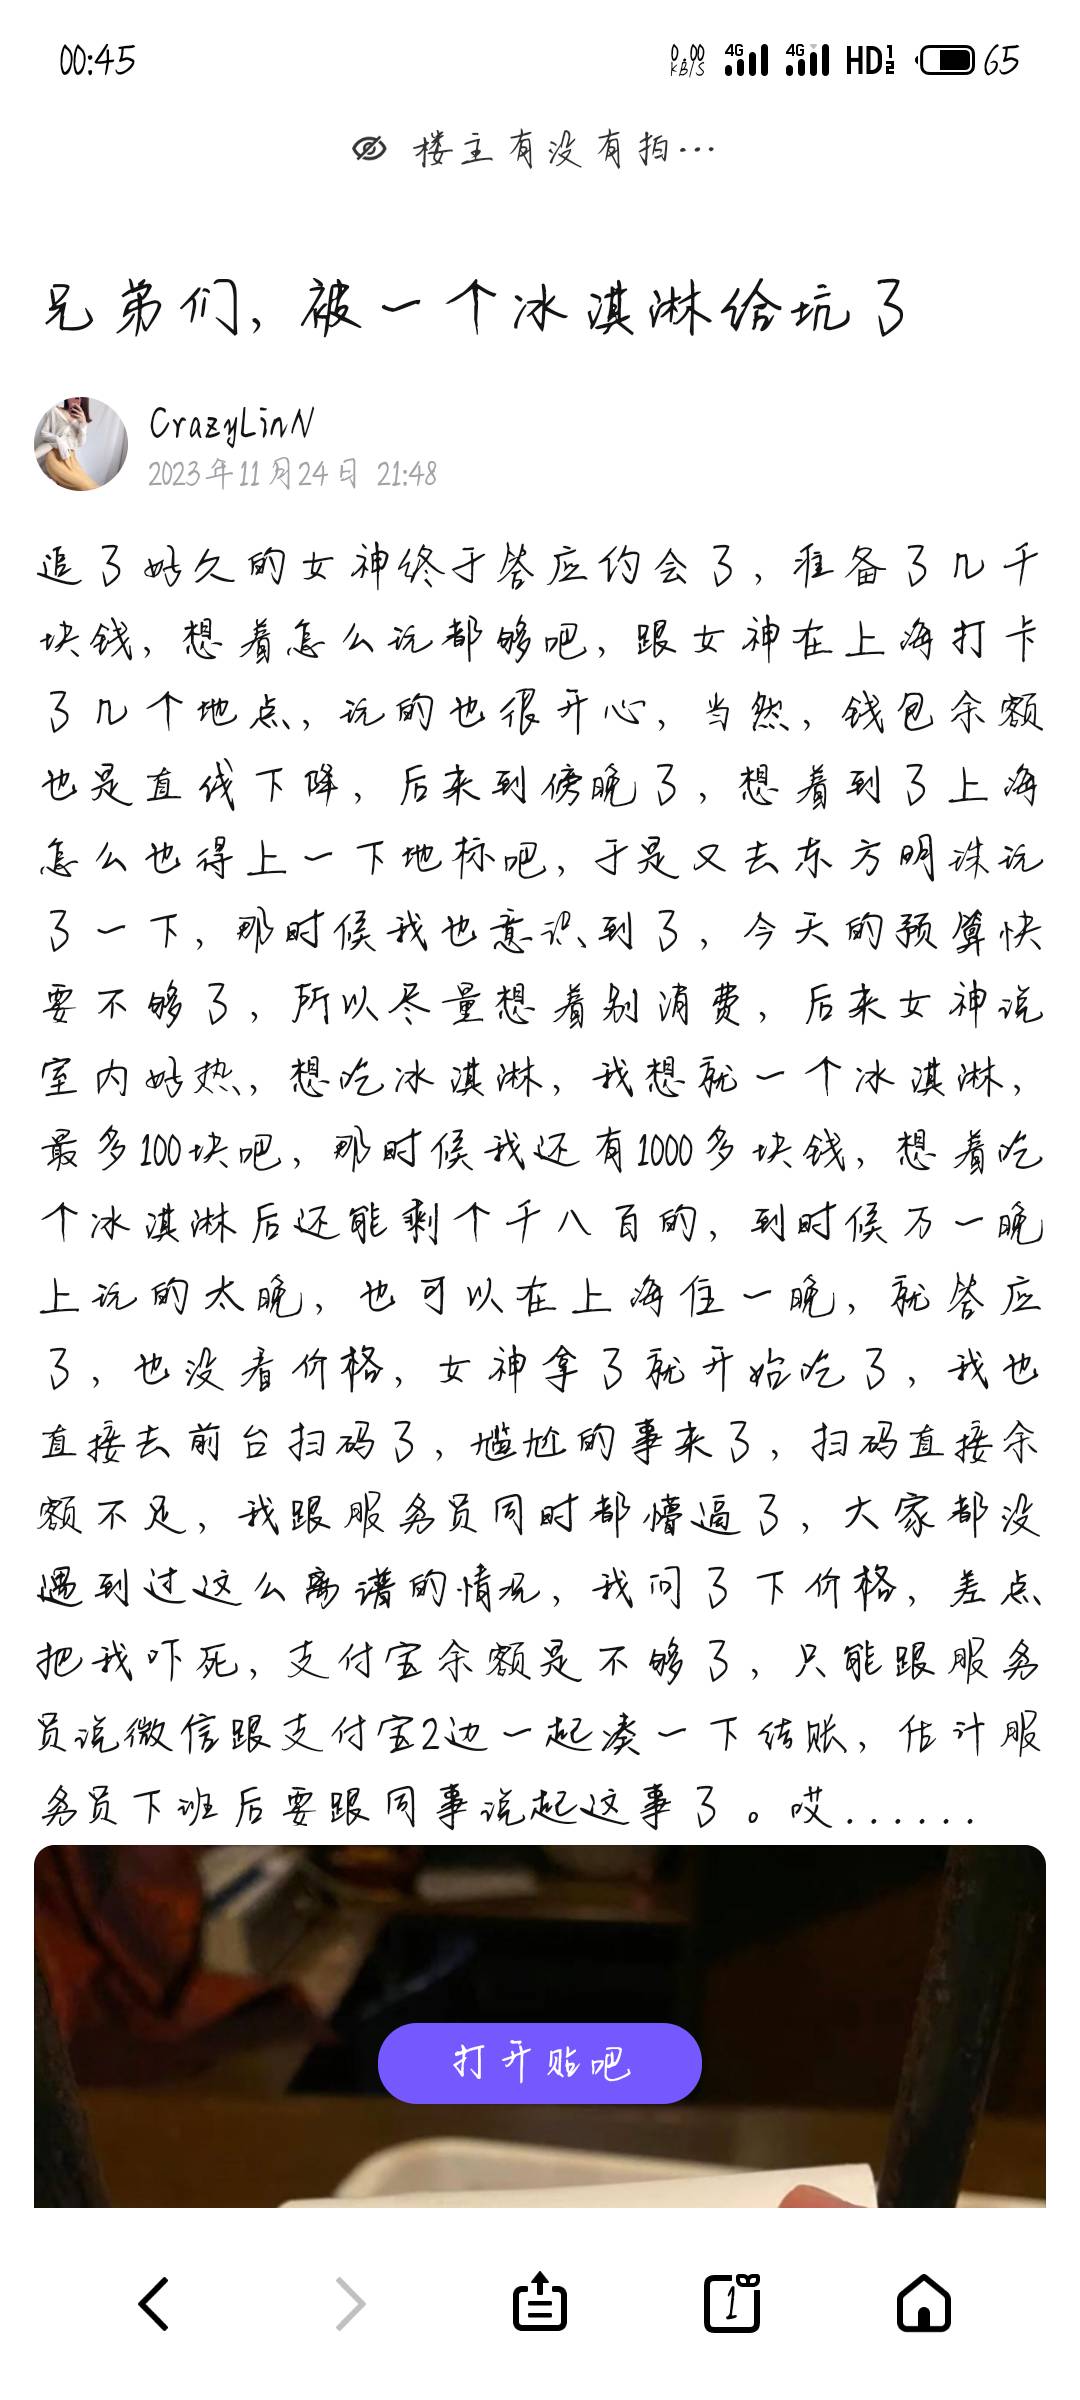 00:45
0.00 KB/S 4G 4G HD 1 2 65
楼主有没有拍···
兄弟们，被一个冰淇淋给坑了
CrazyLinN
2023年11月24日 21:48
追了好久的女神终于答应约会了，准备了几千
块钱，想着怎么玩都够吧，跟女神在上海打卡
了几个地点，玩的也很开心，当然，钱包余额
也是直线下降，后来到傍晚了，想着到了上海
怎么也得上一下地标吧，于是又去东方明珠玩
了一下，那时候我也意识到了，今天的预算快
要不够了，所以尽量想着别消费，后来女神说
室内好热，想吃冰淇淋，我想就一个冰淇淋，
最多100块吧，那时候我还有1000多块钱，想着吃
个冰淇淋后还能剩个千八百的，到时候万一晚
上玩的太晚，也可以在上海住一晚，就答应
了，也没看价格，女神拿了就开始吃了，我也
直接去前台扫码了，尴尬的事来了，扫码直接余
额不足，我跟服务员同时都懵逼了，大家都没
遇到过这么离谱的情况，我问了下价格，差点
把我吓死，支付宝余额是不够了，只能跟服务
员说微信跟支付宝2边一起凑一下结账，估计服
务员下班后要跟同事说起这事了。哎......
打开贴吧
1